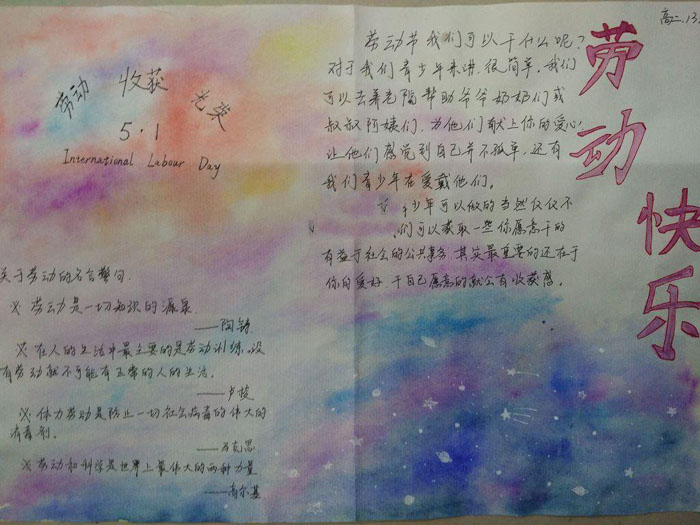 劳动 收获 光荣
5·1
International Labour Day
关于劳动的名言警句.
※ 劳动是一切知识的源泉
——陶铸
※在人的生活中最主要的是劳动训练.没
有劳动就不可能有正常的人的生活.
——卢梭
※体力劳动是防止一切社会病毒的伟大的
消毒剂.
——马克思
※劳动和科学是世界上最伟大的两种力量
——高尔基
高二.13.
劳动节我们可以干什么呢?
对于我们青少年来讲.很简单.我们
可以去养老院帮助爷爷奶奶们或
叔叔阿姨们.为他们献上你的爱心
让他们感觉到自己并不孤单.还有
我们青少年在爱戴他们。
少年可以做的当然仅仅不
们可以获取一些你愿意干的
有益于社会的公共事务.其实最重要的还在于
你的爱好 干自己愿意的就会有收获感.
劳动快乐